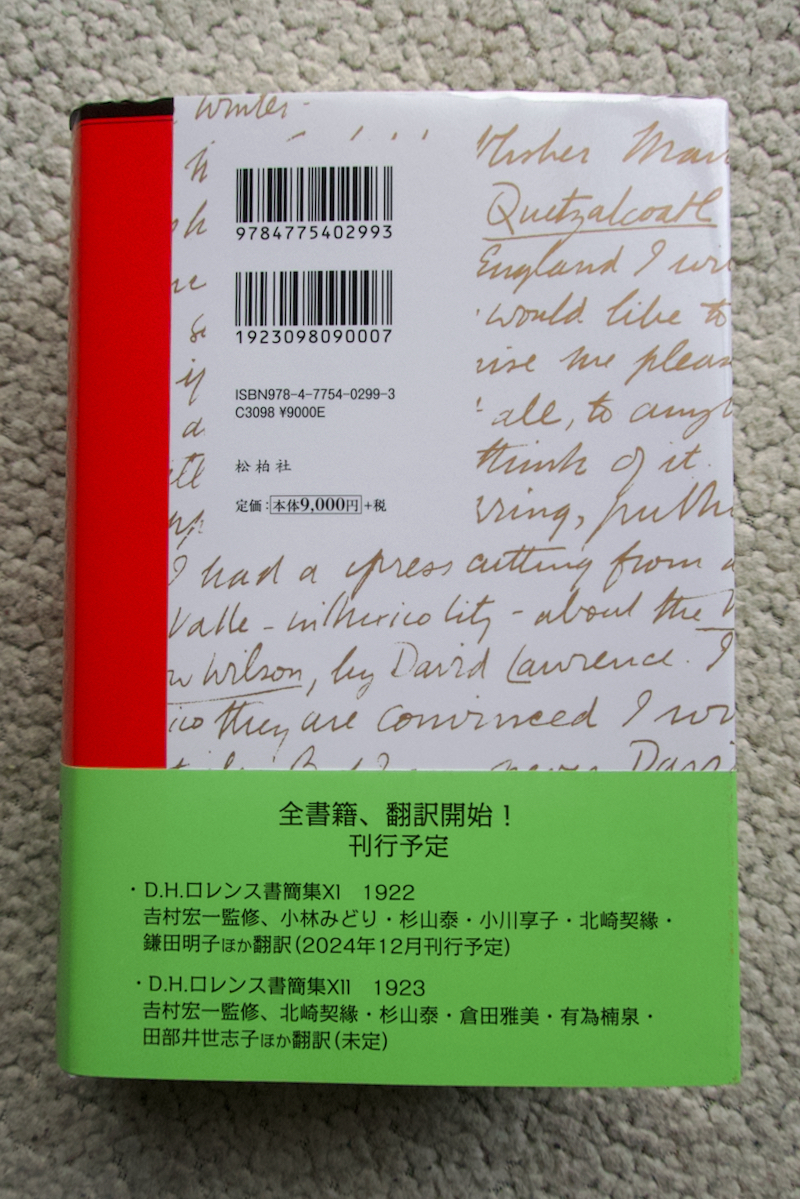 winter-
Mar
9784775402993
Quetzalcoatl
England I
would like to
1923098090007
me pleas
ISBN978-4-7754-0299-3
C3098 ¥9000E
all, to
松柏社
think of it.
定価:本体9,000円+税
I had a press cutting from a
Valle - in Mexico City - about the
Wilson, by David Lawrence. I
they are convinced I
全書籍、翻訳開始！
刊行予定
・D.H.ロレンス書簡集XI 1922
吉村宏一監修、小林みどり・杉山泰・小川享子・北崎契縁・
鎌田明子ほか翻訳(2024年12月刊行予定)
・D.H.ロレンス書簡集XII 1923
吉村宏一監修、北崎契縁・杉山泰・倉田雅美・有為楠泉・
田部井世志子ほか翻訳(未定)